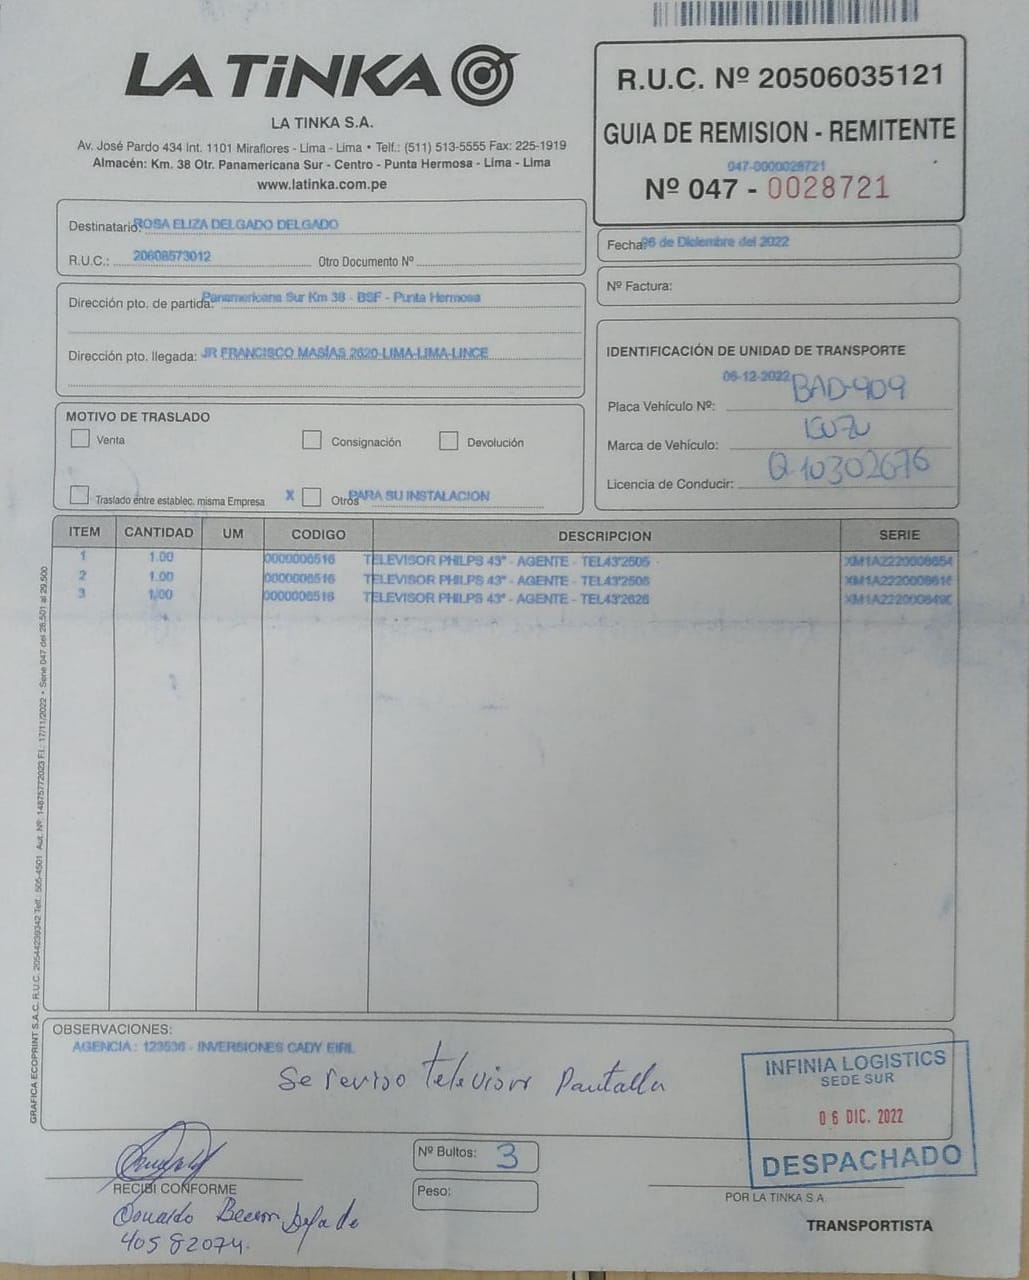 LA TiNKA
LA TINKA S.A.
Av. José Pardo 434 Int. 1101 Miraflores - Lima - Lima • Telf.: (511) 513-5555 Fax: 225-1919
Almacén: Km. 38 Otr. Panamericana Sur - Centro - Punta Hermosa - Lima - Lima
www.latinka.com.pe
R.U.C. Nº 20506035121
GUIA DE REMISION - REMITENTE
047-0000028721
Nº 047 - 0028721
Destinatario: ROSA ELIZA DELGADO DELGADO
R.U.C.: 20608573012 Otro Documento Nº
Fecha: 06 de Diciembre del 2022
Nº Factura:
Dirección pto. de partida: Panamericana Sur Km 38 - BSF - Punta Hermosa
Dirección pto. llegada: JR FRANCISCO MASÍAS 2620-LIMA-LIMA-LINCE
IDENTIFICACIÓN DE UNIDAD DE TRANSPORTE
06-12-2022
Placa Vehículo Nº: BAD-909
Marca de Vehículo: ISUZU
Licencia de Conducir: Q-10302676
MOTIVO DE TRASLADO
Venta Consignación Devolución
Traslado entre establec. misma Empresa X Otros PARA SU INSTALACION
ITEM CANTIDAD UM CODIGO DESCRIPCION SERIE
1 1.00 0000006516 TELEVISOR PHILPS 43" - AGENTE - TEL43'2505 XM1A2220008654
2 1.00 0000006516 TELEVISOR PHILPS 43" - AGENTE - TEL43'2506
3 1.00 0000006516 TELEVISOR PHILPS 43" - AGENTE - TEL43'2628
GRAFICA ECOPRINT S.A.C. R.U.C. 20544239342 Telf.: 505-4501 Aut. Nº: 14875772023 F.I.: 17/11/2022 • Serie 047 del 28,501 al 29,500
OBSERVACIONES:
AGENCIA : 123536 - INVERSIONES CADY EIRL
Se reviso televisor Pantalla
INFINIA LOGISTICS
SEDE SUR
06 DIC. 2022
DESPACHADO
Nº Bultos: 3
Peso:
RECIBI CONFORME
Osualdo
40582074.
POR LA TINKA S.A.
TRANSPORTISTA